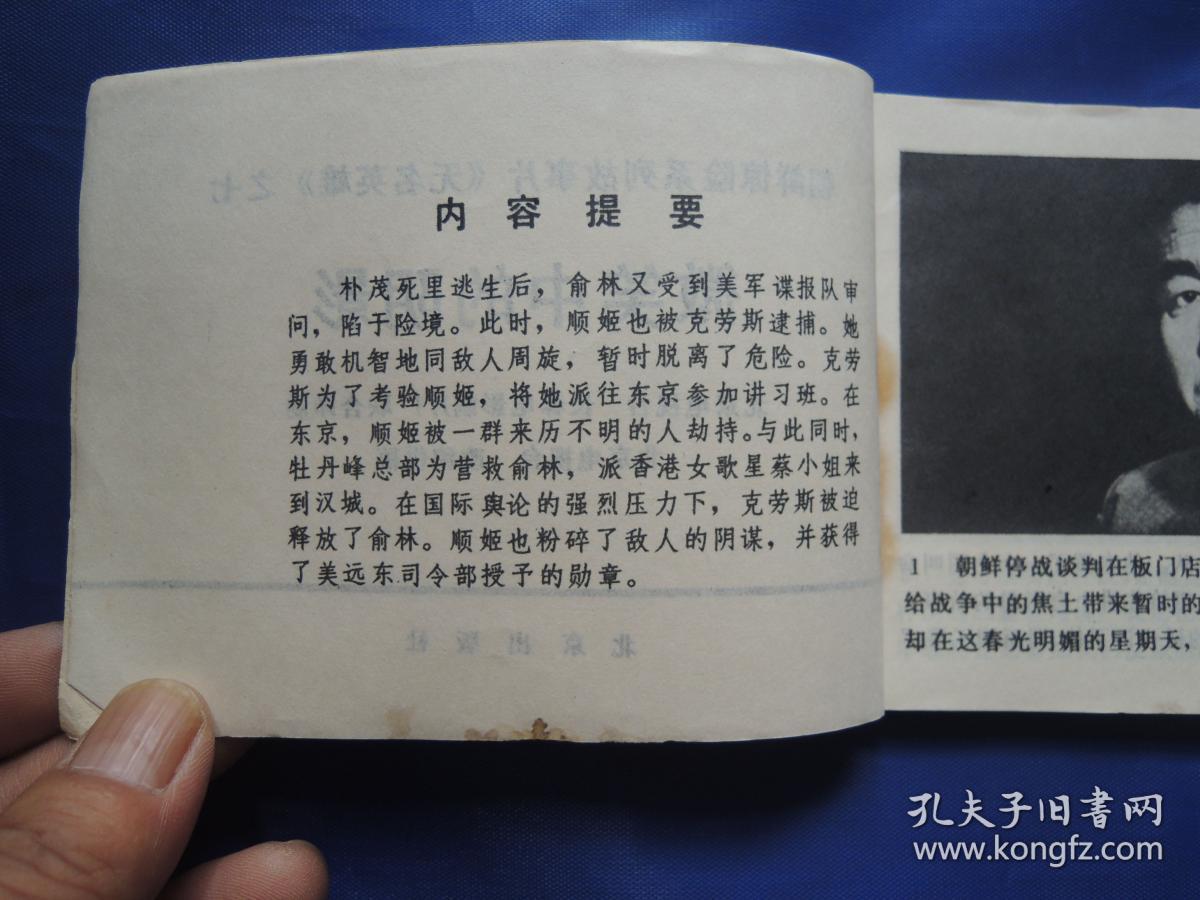 朝鲜惊险系列故事片《无名英雄》之七
内容提要
朴茂死里逃生后，俞林又受到美军谍报队审
问，陷于险境。此时，顺姬也被克劳斯逮捕。她
勇敢机智地同敌人周旋，暂时脱离了危险。克劳
斯为了考验顺姬，将她派往东京参加讲习班。在
东京，顺姬被一群来历不明的人劫持。与此同时，
牡丹峰总部为营救俞林，派香港女歌星蔡小姐来
到汉城。在国际舆论的强烈压力下，克劳斯被迫
释放了俞林。顺姬也粉碎了敌人的阴谋，并获得
了美远东司令部授予的勋章。
北京出版社
1 朝鲜停战谈判在板门店
给战争中的焦土带来暂时的
却在这春光明媚的星期天，
孔夫子旧書网
www.kongfz.com